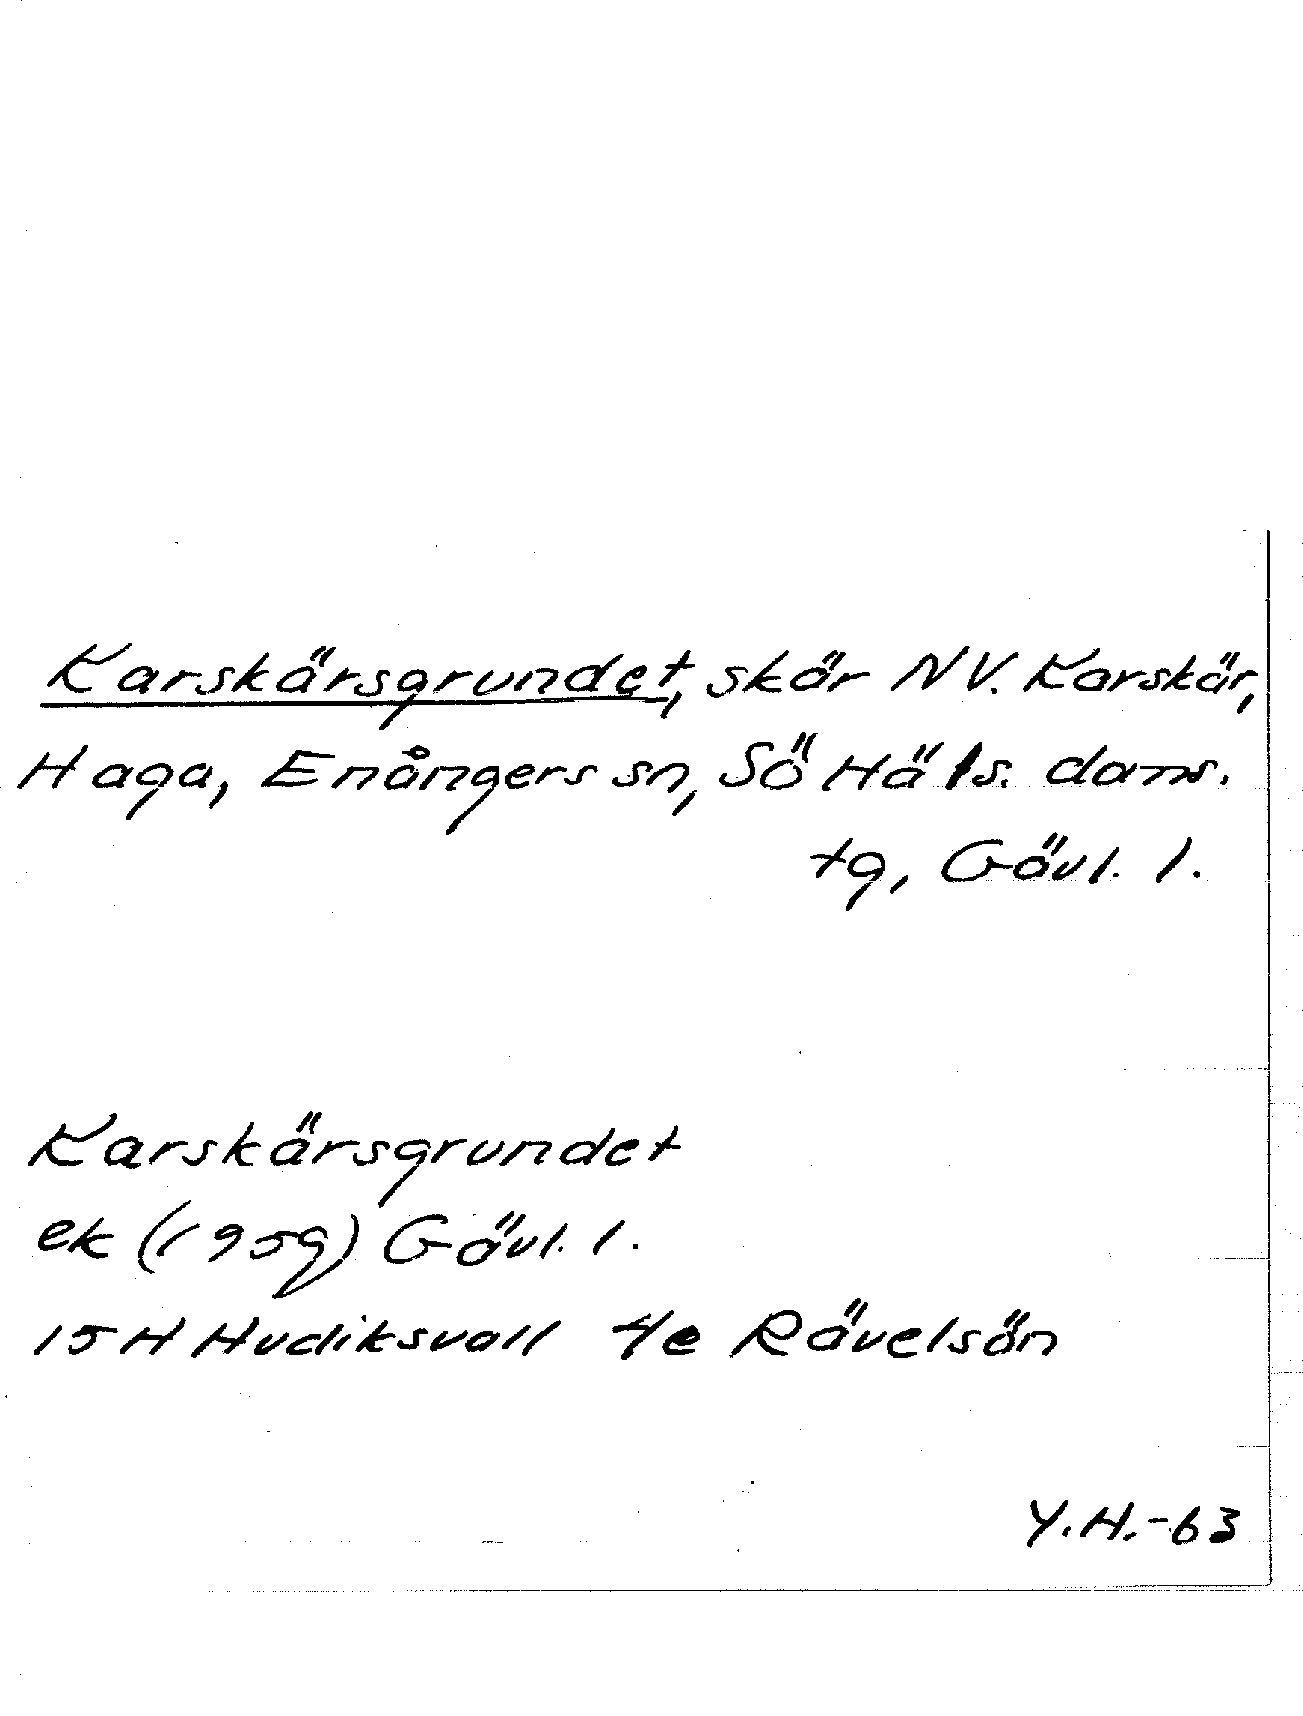 Karskärsgrundet, skär NV. Karskär,
Haga, Enångers sn, Sö Häls. doms.
tg, Gävl. l.
Karskärsgrundet
ek (1959) Gävl. l.
15H Hudiksvall 4e Rävelsön
Y.H.-63